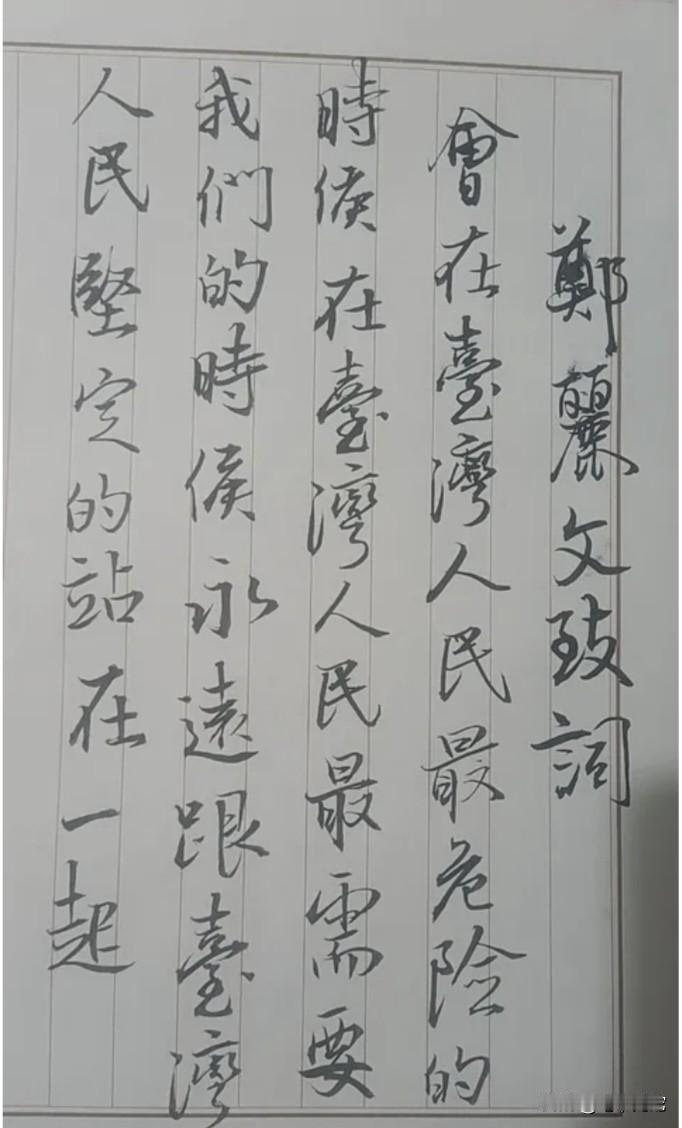 鄭麗文致詞
會在臺灣人民最危險的
時候在臺灣人民最需要
我們的時候永遠跟臺灣
人民堅定的站在一起